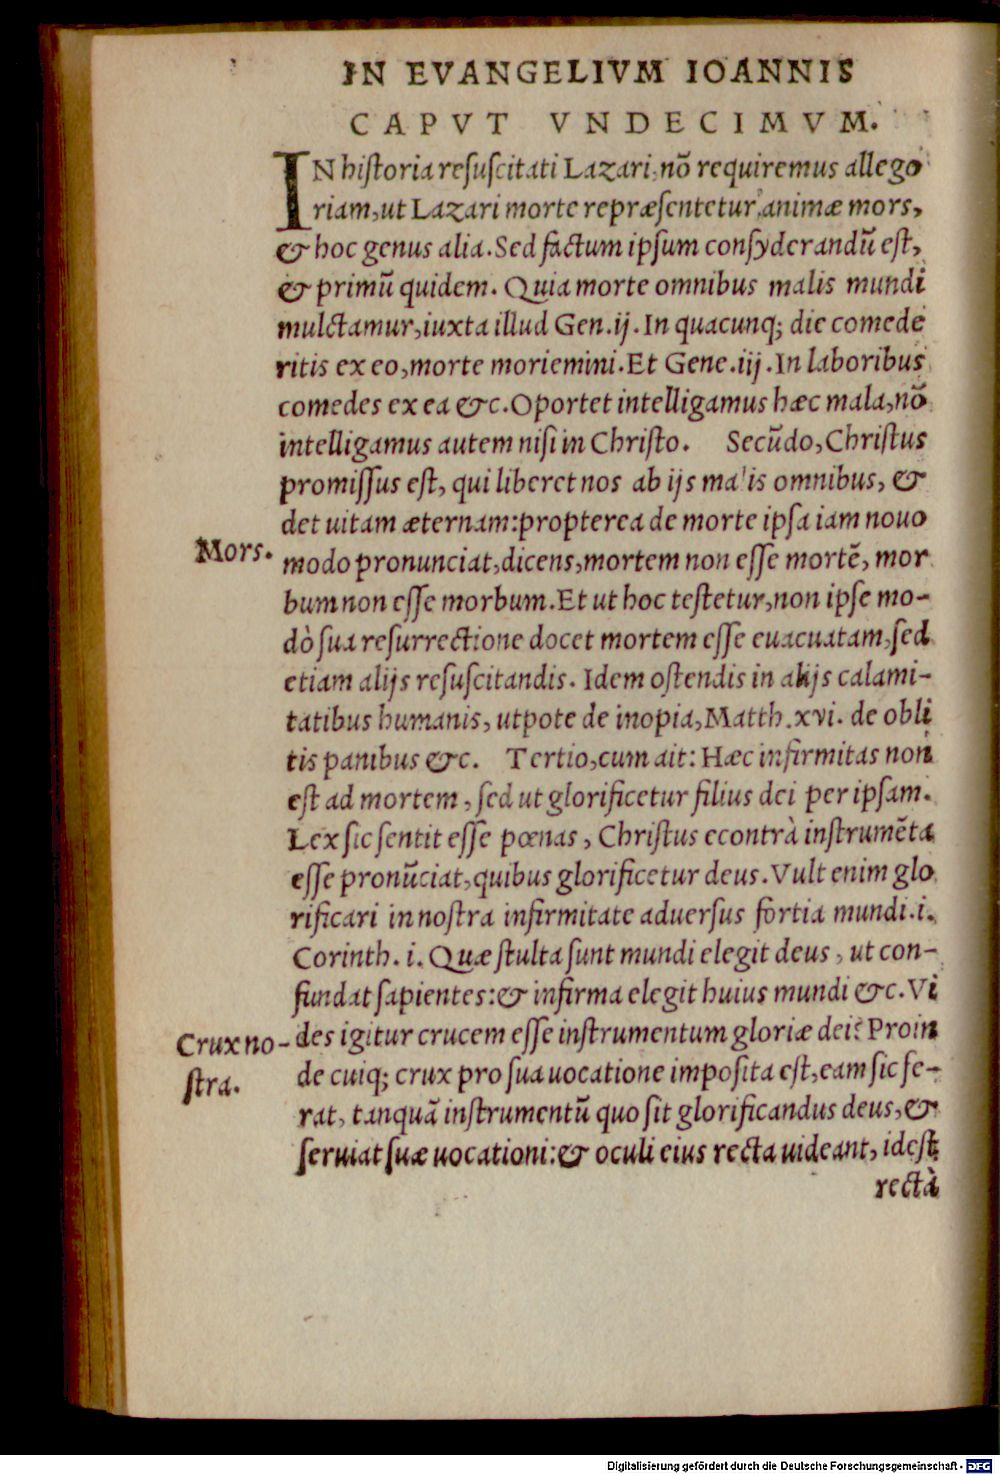 IN EVANGELIVM IOANNIS
CAPVT VNDECIMVM.
IN historia resuscitati Lazari, nō requiremus allego
riam, ut Lazari morte repræsentetur animæ mors,
& hoc genus alia. Sed factum ipsum consyderandū est,
& primū quidem. Quia morte omnibus malis mundi
mulctamur, iuxta illud Gen. ij. In quacunq; die comede
ritis ex eo, morte moriemini. Et Gene. iij. In laboribus
comedes ex ea &c. Oportet intelligamus hæc mala, nō
intelligamus autem nisi in Christo. Secūdo, Christus
promissus est, qui liberet nos ab ijs malis omnibus, &
det uitam æternam: propterea de morte ipsa iam nouo
Mors.
modo pronunciat, dicens, mortem non esse mortē, mor
bum non esse morbum. Et ut hoc testetur, non ipse mo-
dò sua resurrectione docet mortem esse euacuatam, sed
etiam alijs resuscitandis. Idem ostendis in alijs calami-
tatibus humanis, utpote de inopia, Matth. xvi. de obli
tis panibus &c. Tertio, cum ait: Hæc infirmitas non
est ad mortem, sed ut glorificetur filius dei per ipsam.
Lex sic sentit esse pœnas, Christus econtrà instrumēta
esse pronūciat, quibus glorificetur deus. Vult enim glo
rificari in nostra infirmitate aduersus fortia mundi. i.
Corinth. i. Quæ stulta sunt mundi elegit deus, ut con-
fundat sapientes: & infirma elegit huius mundi &c. Vi
Crux no-
stra.
des igitur crucem esse instrumentum gloriæ dei? Proin
de cuiq; crux pro sua uocatione imposita est, eam sic fe-
rat, tanquā instrumentū quo sit glorificandus deus, &
seruiat suæ uocationi: & oculi eius recta uideant, idest
rectà
Digitalisierung gefördert durch die Deutsche Forschungsgemeinschaft - DFG